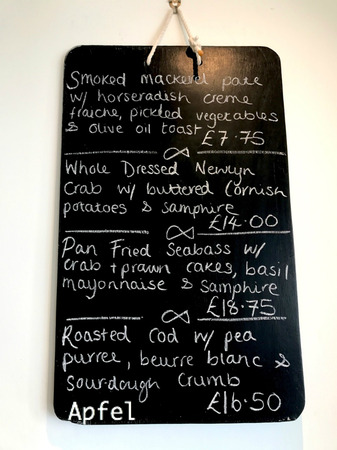 Smoked mackerel pate
w/ horseradish creme
fraiche, pickled vegetables
& olive oil toast £7.75
Whole Dressed Newlyn
Crab w/ buttered Cornish
potatoes & samphire
£14.00
Pan Fried Seabass w/
crab + prawn cakes, basil
mayonnaise & samphire
£18.75
Roasted Cod w/ pea
purree, beurre blanc &
Sourdough Crumb
£16.50
Apfel